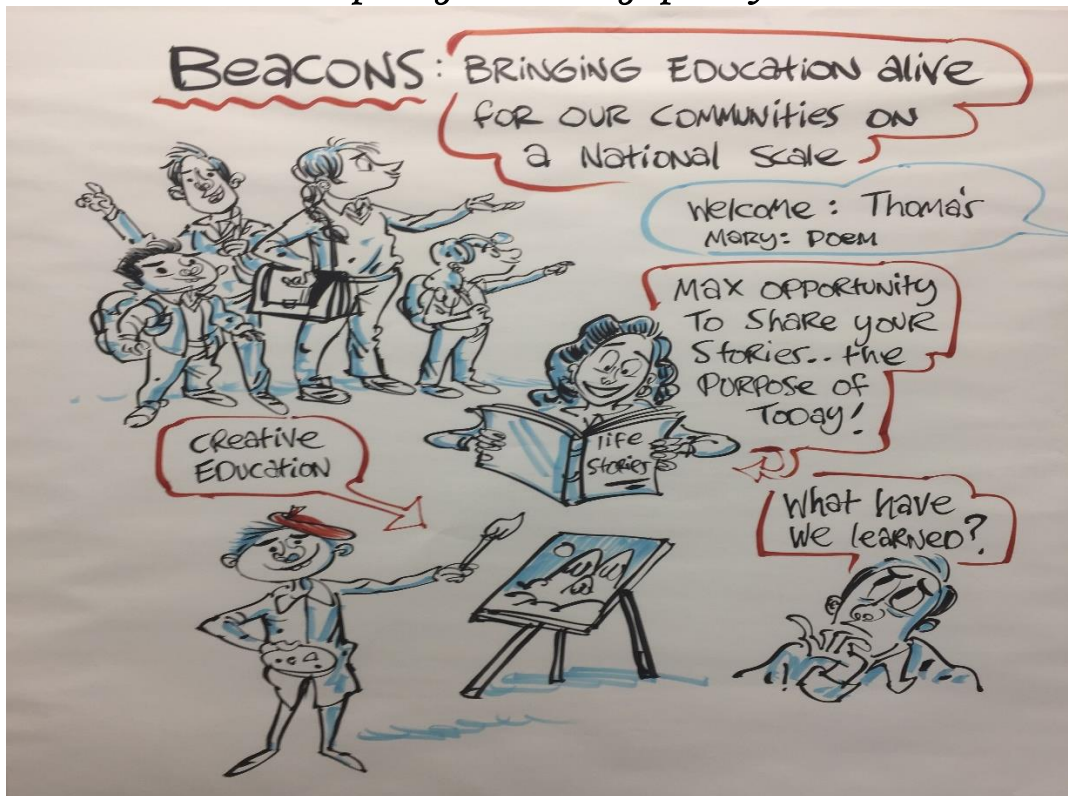 Beacons: BRINGING EDUCATION alive
FOR OUR COMMUNITIES ON
a National Scale
Welcome: Thomas
Mary: POEM
MAX OPPORTUNITY
To Share your
Stories.. the
PURPOSE of
Today!
life
Stories
CReative
EDUCATION
What have
We leaRNED?